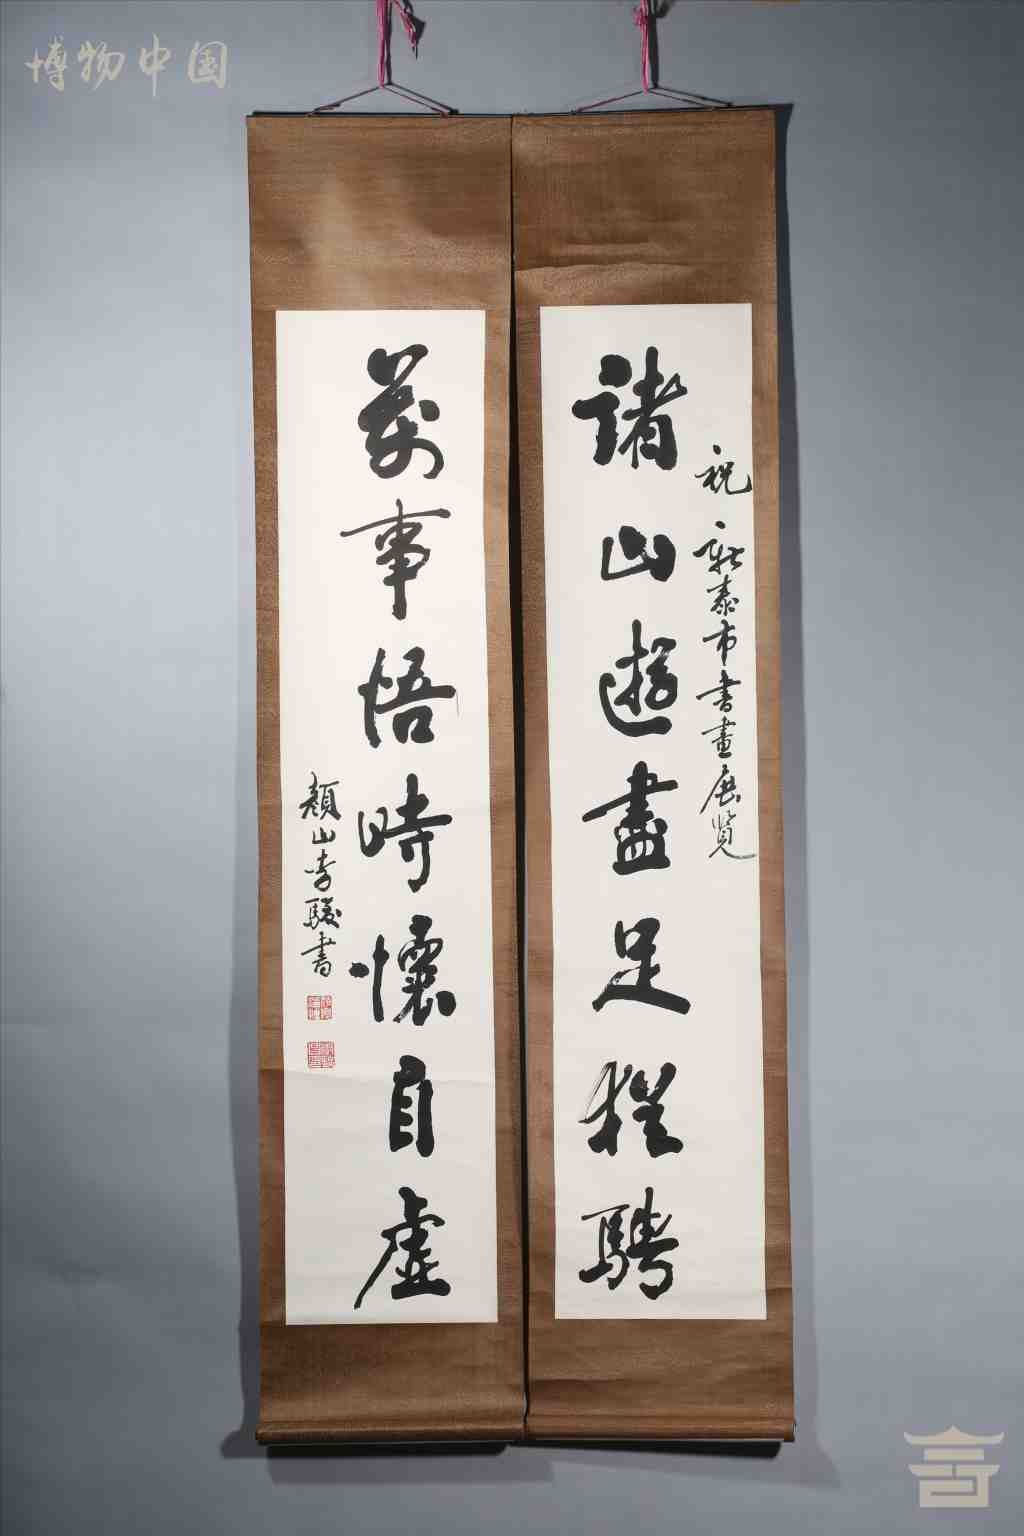 博物中国
祝新泰市書畫展覽
諸山遊盡足猶騁
萬事悟時懷自虛
顏山李駿書